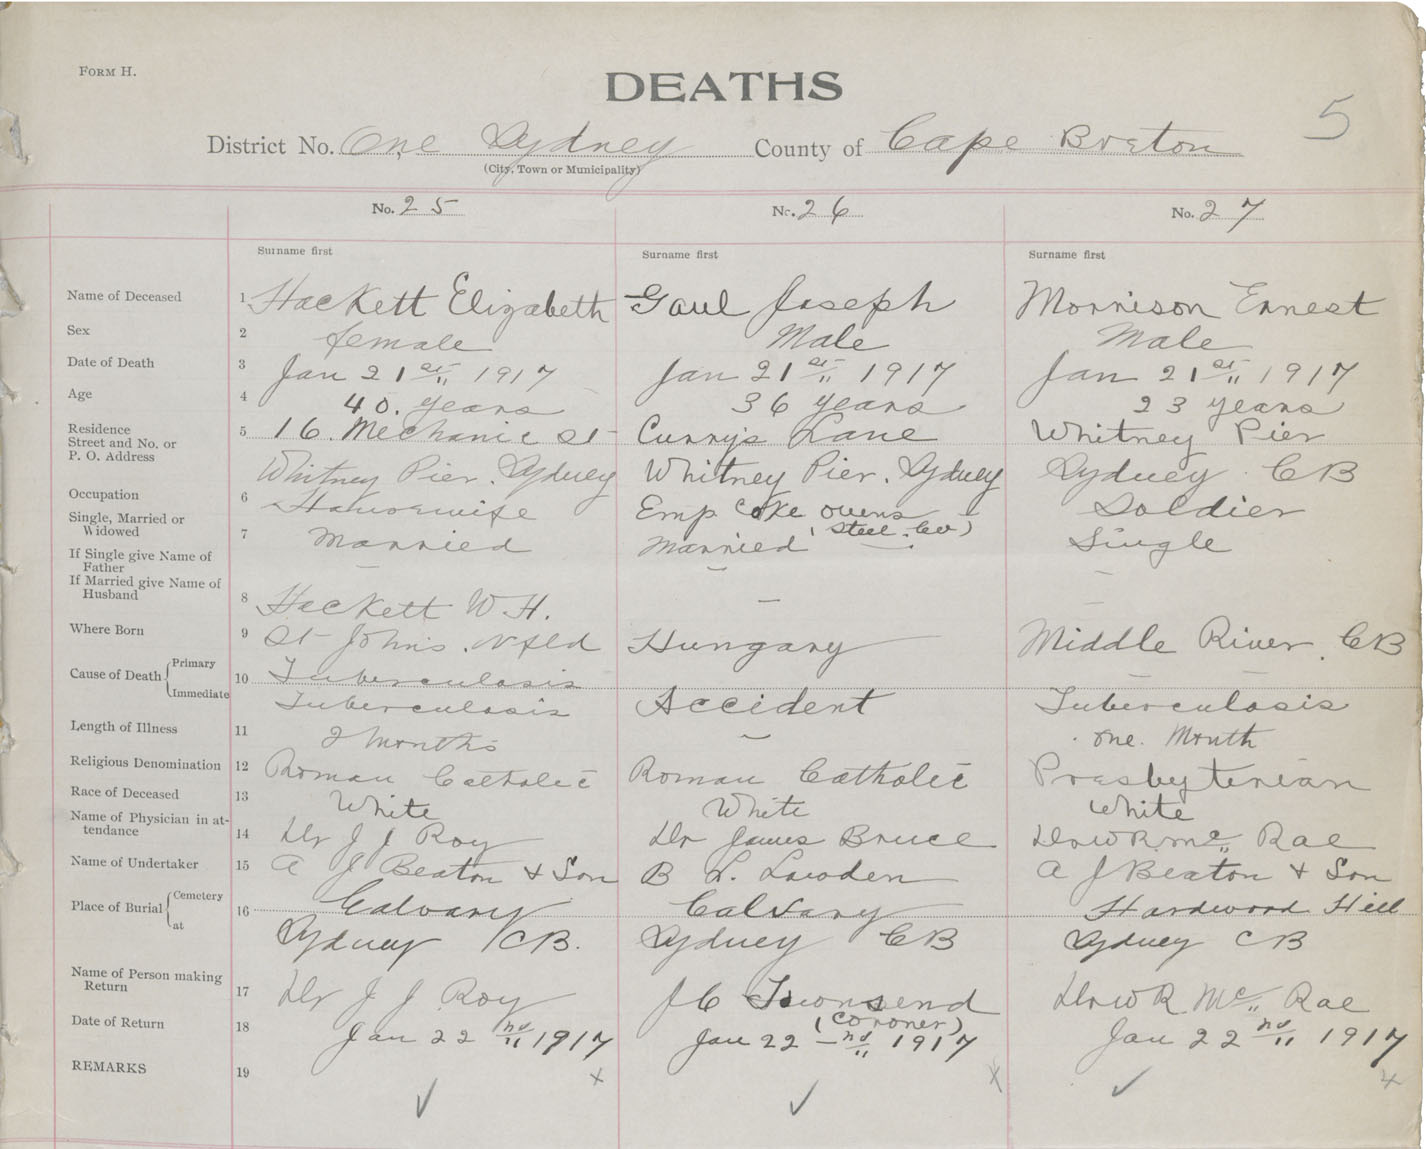 FORM H.
DEATHS
5
District No. One Sydney County of Cape Breton
(City, Town or Municipality)
No. 25 No. 26 No. 27
Surname first Surname first Surname first
Name of Deceased 1 Hackett Elizabeth Gaul Joseph Morrison Ernest
Sex 2 female Male Male
Date of Death 3 Jan 21st 1917 Jan 21st 1917 Jan 21st 1917
Age 4 40. years 36 years 23 years
Residence
Street and No. or 5 16. Mechanic St Curry's Lane Whitney Pier
P. O. Address
Whitney Pier. Sydney Whitney Pier. Sydney Sydney CB
Occupation 6 Housewife Emp Coke ovens Soldier
(Steel. Co)
Single, Married or
Widowed 7 Married Married Single
If Single give Name of
Father — — —
If Married give Name of
Husband 8 Hackett W. H. —
Where Born 9 St John's. Nfld Hungary Middle River. CB
Cause of Death { Primary 10 Tuberculosis —
Immediate Tuberculosis Accident Tuberculosis
Length of Illness 11 2 Months — one. Month
Religious Denomination 12 Roman Catholic Roman Catholic Presbyterian
Race of Deceased 13 White White White
Name of Physician in at-
tendance 14 Dr J J Roy Dr James Bruce Dr W R. Mc Rae
Name of Undertaker 15 A J Beaton & Son B L. Lowden A J Beaton & Son
Place of Burial { Cemetery 16 Calvary Calvary Hardwood Hill
at Sydney CB. Sydney CB Sydney CB
Name of Person making
Return 17 Dr J J Roy J C Townsend Dr W R. Mc Rae
(Coroner)
Date of Return 18 Jan 22nd 1917 Jan 22nd 1917 Jan 22nd 1917
REMARKS 19 x x x
✓ ✓ ✓